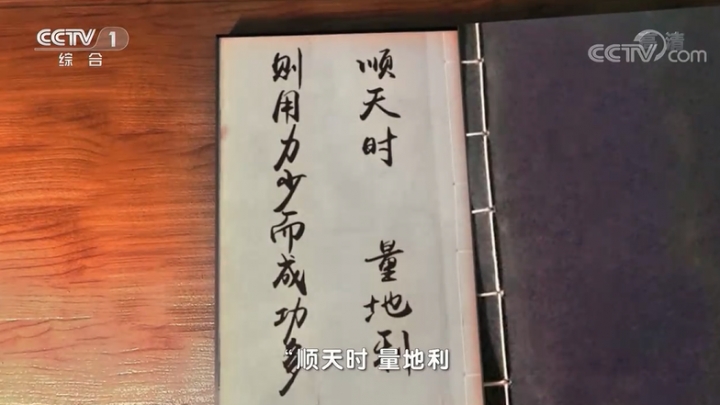 CCTV 1
综合
CCTV.com
高清
顺天时 量地利
则用力少而成功多
“顺天时 量地利